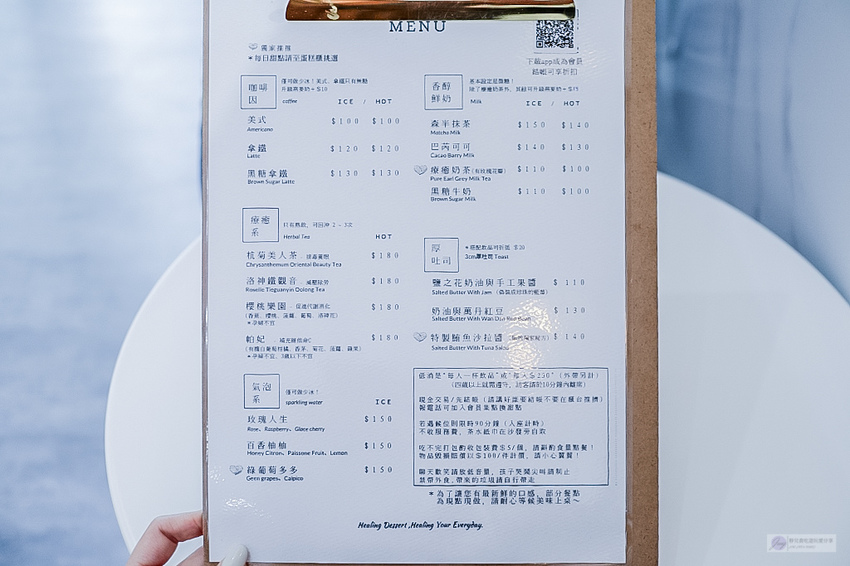 MENU
獨家推薦
*每日甜點請至蛋糕櫃挑選
下載app成為會員
結帳可享折扣
咖啡因
coffee
ICE / HOT
美式 $100 $100
Americano
拿鐵 $120 $120
Latte
黑糖拿鐵 $130 $130
Brown Sugar Latte
療癒系
只有熱飲，可回沖 2 - 3次
Herbal Tea
HOT
桃菊美人茶 $180
Chrysanthemum Oriental Beauty Tea
洛神鐵觀音 $180
Roselle Tieguanyin Oolong Tea
櫻桃樂園 $180
*孕婦不宜
帕妃 $180
*孕婦不宜，3歲以下不宜
氣泡系
僅可做少冰！
sparkling water
ICE
玫瑰人生 $150
Rose、Raspberry、Glace cherry
百香柚柚 $150
Honey Citron、Paissone Fruit、Lemon
綠葡萄多多 $150
Geen grapes、Calpico
香醇鮮奶
基本設定是微糖！
Milk
ICE / HOT
森半抹茶 $150 $140
Matcha Milk
巴芮可可 $140 $130
Cacao Barry Milk
療癒奶茶(有玫瑰花瓣) $110 $100
Pure Earl Grey Milk Tea
黑糖牛奶 $110 $100
Brown Sugar Milk
厚吐司
*搭配飲品可折抵 $20
3cm厚吐司 Toast
鹽之花奶油與手工果醬 $110
Salted Butter With Jam
奶油與萬丹紅豆 $130
Salted Butter With Wan Dan Red Bean
特製鮪魚沙拉醬 $140
Salted Butter With Tuna Salad
低消是"每人一杯飲品"或"每人$250"(外帶另計)
現金交易/先結帳（請講好誰要結帳不要在櫃台推擠）
報電話可加入會員集點換甜點
若遇候位則限時90分鐘（入座計時）
不收服務費，茶水紙巾在沙發旁自取
吃不完打包酌收包裝費$5/個，請斟酌食量點餐！
物品毀損賠償以$100/件計價，請小心翼翼！
聊天歡笑請放低音量，孩子哭鬧尖叫請制止
禁帶外食，帶來的垃圾請自行帶走
*為了讓您有最新鮮的口感，部分餐點
為現點現做，請耐心等候美味上桌～
Healing Dessert ,Healing Your Everyday.